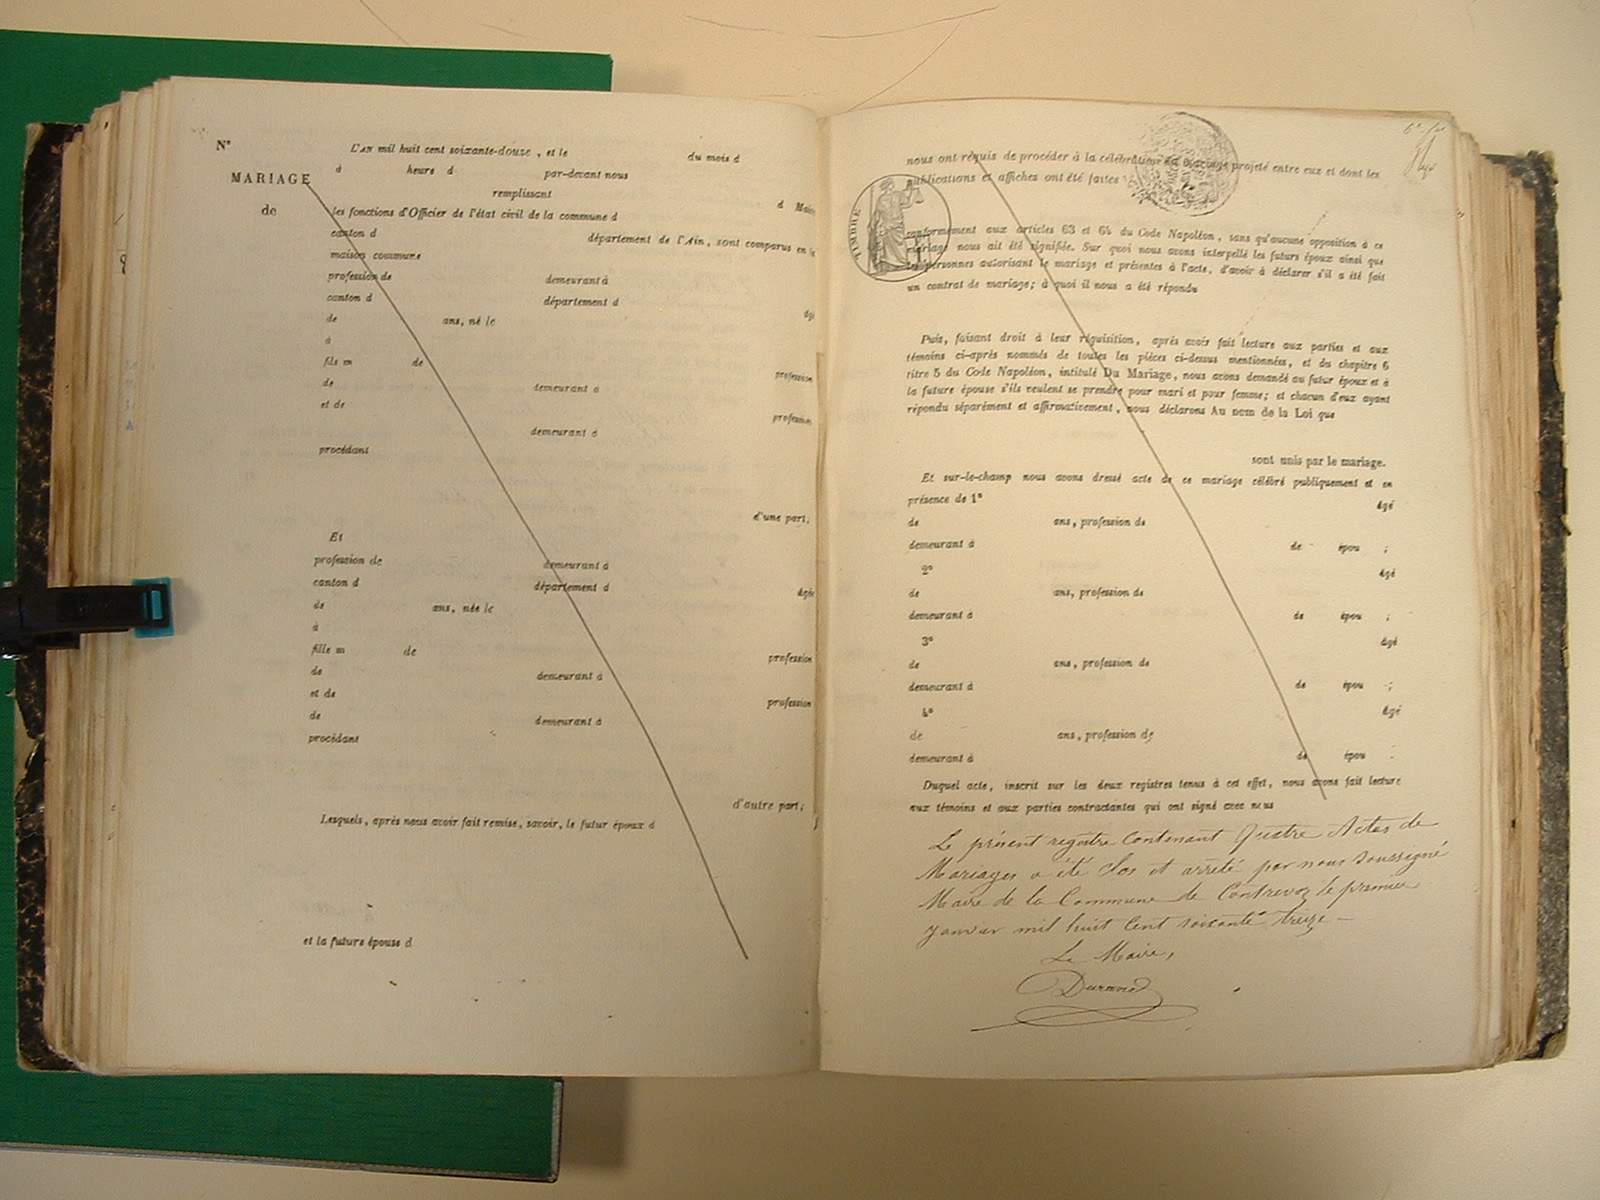 N°
L'AN mil huit cent soixante-douze, et le du mois d
à heure d par-devant nous
MARIAGE
remplissant
d Maire
de
les fonctions d'Officier de l'état civil de la commune d
canton d département de l'Ain, sont comparus en
maison commune
profession de demeurant à
canton d département d
âgé
de ans, né le
à
fils m de
profession
de demeurant à
et de
profession
demeurant à
procédant
d'une part;
Et
profession de demeurant à
canton d département d
âgée
de ans, née le
à
fille m de
profession
de demeurant à
et de
profession
de demeurant à
procédant
d'autre part;
Lesquels, après nous avoir fait remise, savoir, le futur époux d
et la future épouse d
nous ont requis de procéder à la célébration du mariage projeté entre eux et dont les
publications et affiches ont été faites
TIMBRE
conformément aux articles 63 et 64 du Code Napoléon, sans qu'aucune opposition à ce
mariage nous ait été signifiée. Sur quoi nous avons interpellé les futurs époux ainsi que
les personnes autorisant le mariage et présentes à l'acte, d'avoir à déclarer s'il a été fait
un contrat de mariage; à quoi il nous a été répondu
Puis, faisant droit à leur réquisition, après avoir fait lecture aux parties et aux
témoins ci-après nommés de toutes les pièces ci-dessus mentionnées, et du chapitre 6
titre 5 du Code Napoléon, intitulé Du Mariage, nous avons demandé au futur époux et à
la future épouse s'ils veulent se prendre pour mari et pour femme; et chacun d'eux ayant
répondu séparément et affirmativement, nous déclarons Au nom de la Loi que
sont unis par le mariage.
Et sur-le-champ nous avons dressé acte de ce mariage célébré publiquement et en
présence de 1° âgé
de ans, profession de
demeurant à de épou ;
2° âgé
de ans, profession de
demeurant à de épou ;
3° âgé
de ans, profession de
demeurant à de épou ;
4° âgé
de ans, profession de
demeurant à de épou .
Duquel acte, inscrit sur les deux registres tenus à cet effet, nous avons fait lecture
aux témoins et aux parties contractantes qui ont signé avec nous
Le présent registre Contenant Quatre Actes de
Mariages a été Clos et arrêté par nous Soussigné
Maire de la Commune de Contrevoz le premier
janvier mil huit Cent soixante treize —
Le Maire,
Durand